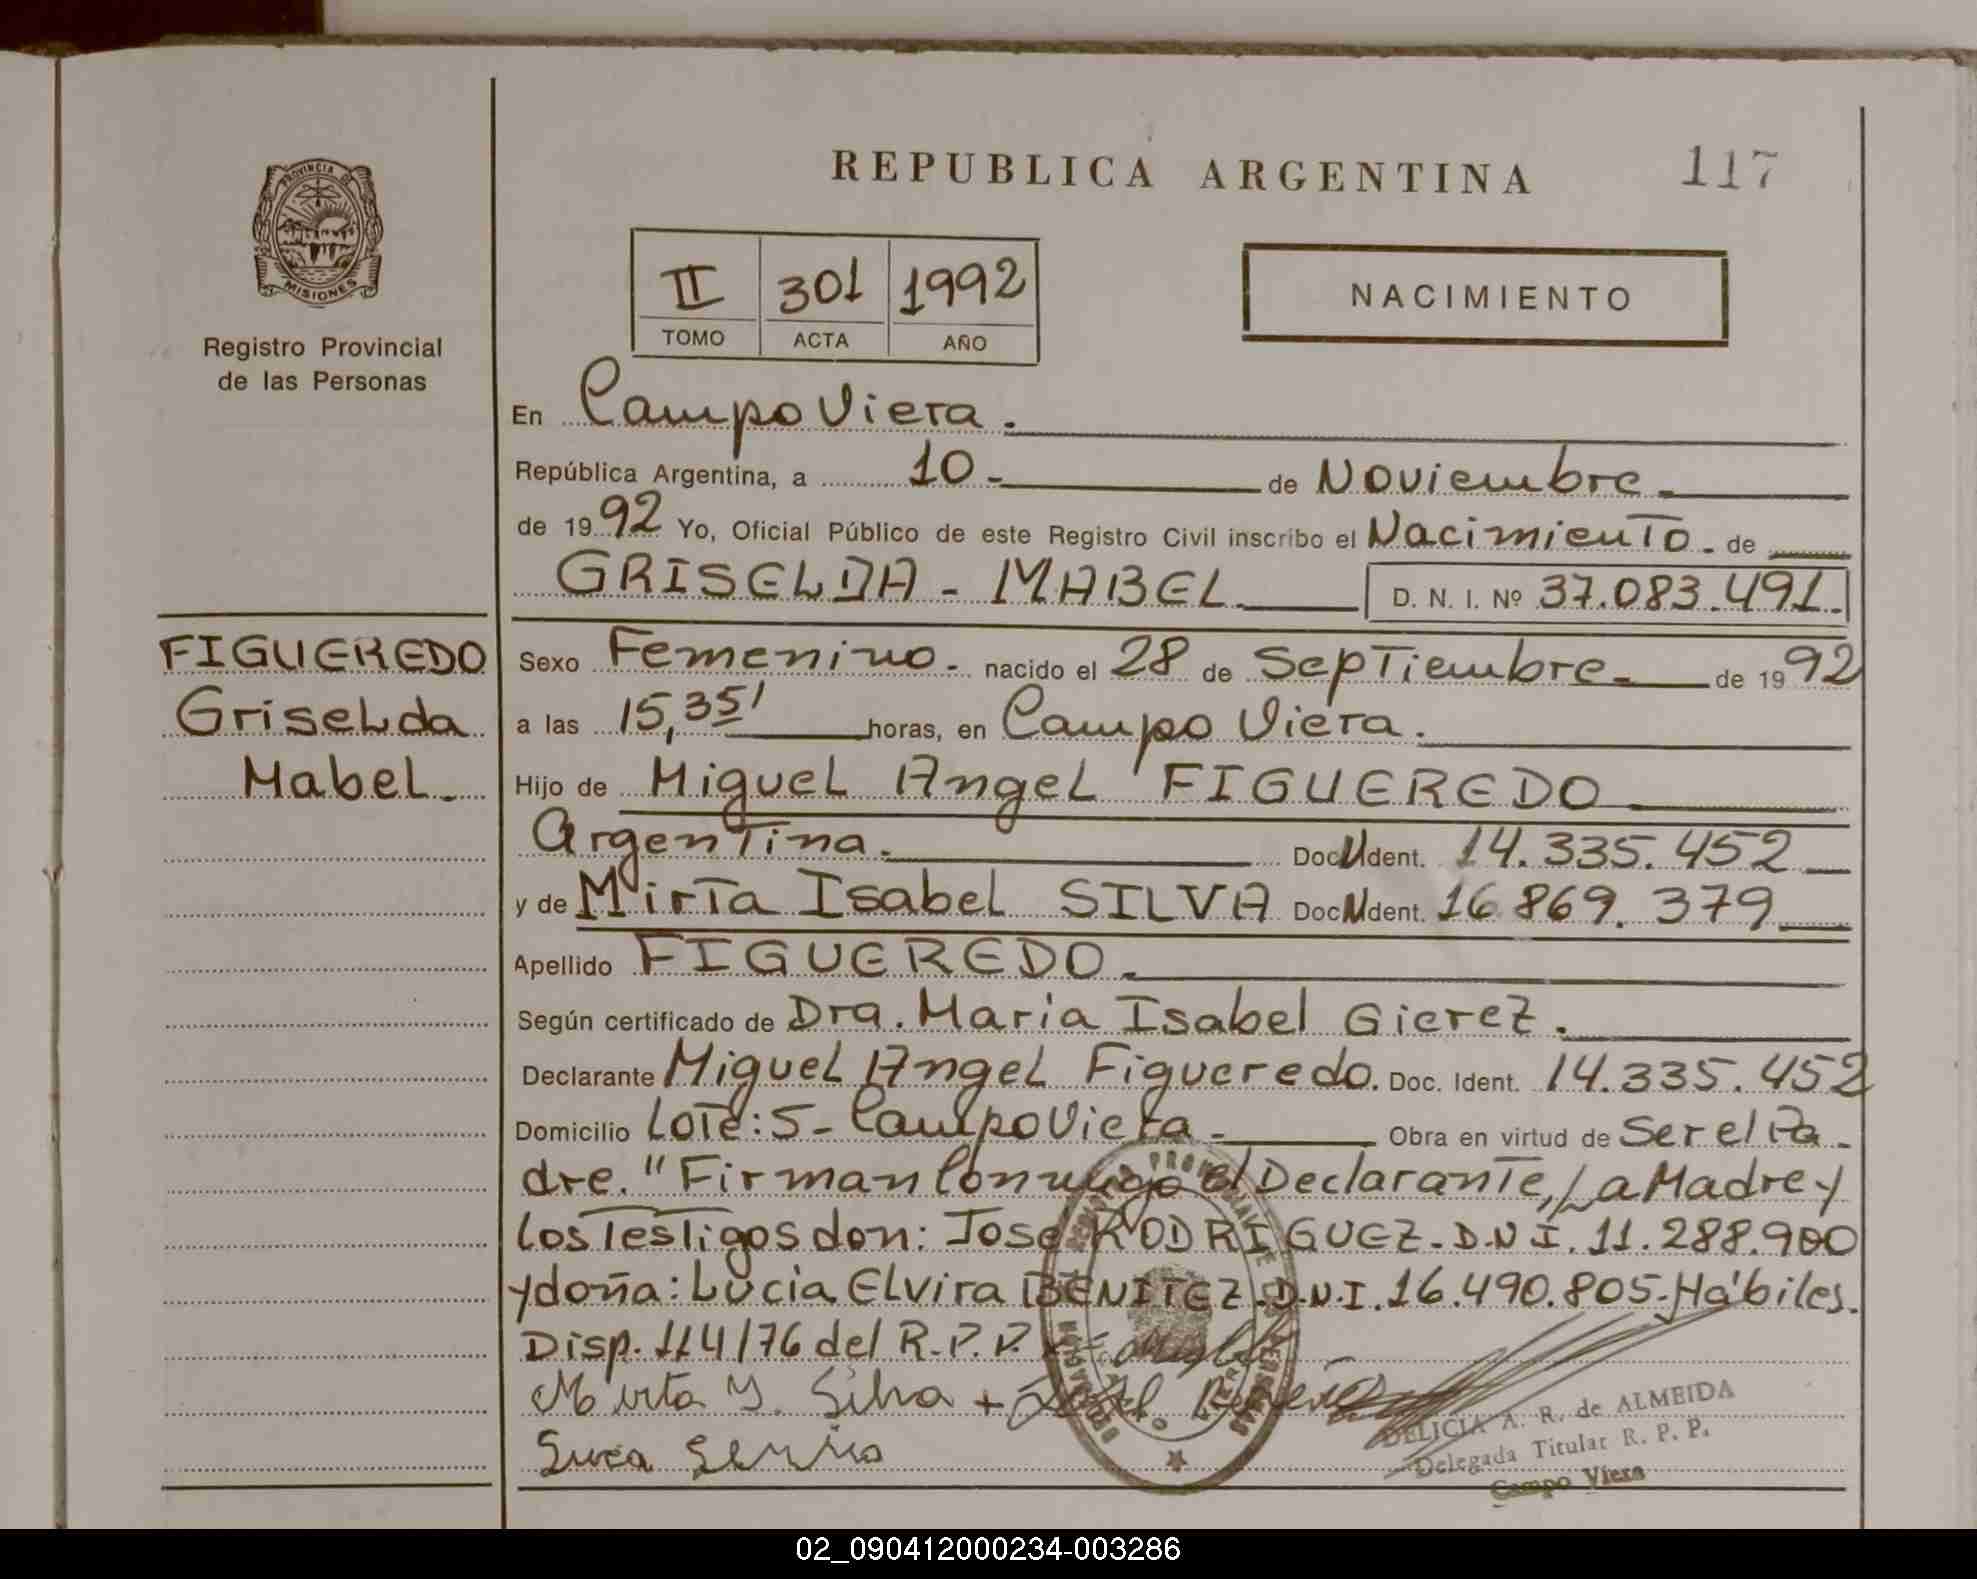 REPUBLICA ARGENTINA 117
PROVINCIA DE
MISIONES
Registro Provincial
de las Personas
II 301 1992
TOMO ACTA AÑO
NACIMIENTO
En Campo Viera.
República Argentina, a 10- de Noviembre-
de 1992 Yo, Oficial Público de este Registro Civil inscribo el Nacimiento- de
GRISELDA - MABEL D. N. I. Nº 37.083.491.
FIGUEREDO
Griselda
Mabel-
Sexo Femenino- nacido el 28 de Septiembre- de 1992
a las 15,35' horas, en Campo Viera.
Hijo de Miguel Angel FIGUEREDO
Argentina. Doc. Ident. 14.335.452
y de Mirta Isabel SILVA Doc. Ident. 16.869.379
Apellido FIGUEREDO-
Según certificado de Dra. Maria Isabel Gierez.
Declarante Miguel Angel Figueredo. Doc. Ident. 14.335.452
Domicilio Lote: 5- Campo Viera- Obra en virtud de Ser el Pa-
dre." Firman Conmigo el Declarante, La Madre y
los Testigos don: Jose RODRIGUEZ- D.N.I. 11.288.900
y doña: Lucia Elvira BENITEZ- D.N.I. 16.490.805- Hábiles.
Disp. 114/76 del R.P.P.
Mirta I. Silva +
DELICIA A. R. de ALMEIDA
Delegada Titular R. P. P.
Campo Viera
02_090412000234-003286